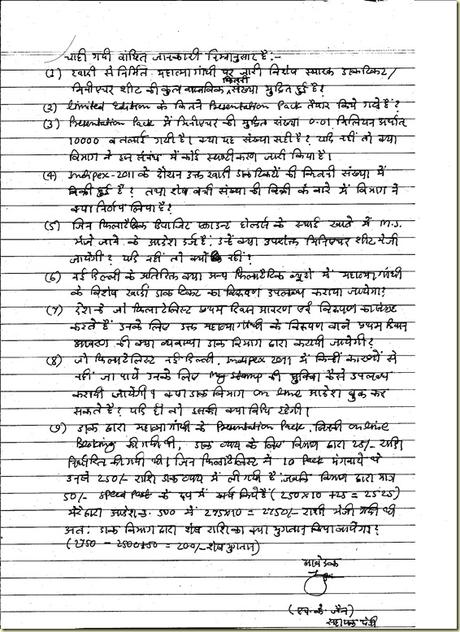 चाही गयी वांछित जानकारी निम्नानुसार है:-
(1) खादी से निर्मित महात्मा गांधी पर जारी विशेष स्मारक डाकटिकट/
मिनीएचर शीट की कुल वास्तविक कितनी संख्या मुद्रित हुई है?
(2) Limited Edition के कितने Presentation Pack तैयार किये गये हैं?
(3) Presentation Pack में मिनीएचर की मुद्रित संख्या 0.01 मिलियन अर्थात
10000 बतलाई गयी है। क्या यह संख्या सही है? यदि नहीं तो क्या
विभाग ने इस संबंध में कोई स्पष्टीकरण जारी किया है।
(4) Indipex-2011 के दौरान उक्त खादी डाकटिकटों की कितनी संख्या में
बिक्री हुई है? तथा शेष बची संख्या की बिक्री के बारे में विभाग ने
क्या निर्णय लिया है?
(5) जिन फिलाटेलिक डिपाजिट एकाउन्ट होल्डर्स के स्थाई खाते में M.S.
भेजे जाने के आदेश दर्ज हैं, उन्हें क्या उपरोक्त मिनिएचर शीट भेजी
जायेगी? यदि नहीं तो क्यों नहीं?
(6) नई दिल्ली के अतिरिक्त क्या अन्य फिलाटेलिक ब्यूरो में महात्मा गांधी
के विशेष खादी डाक टिकट का विरूपण उपलब्ध कराया जायेगा?
(7) देश के जो फिलाटेलिस्ट प्रथम दिवस आवरण एवं विरूपण का संग्रह
करते हैं उनके लिए उक्त महात्मा गांधी के विरूपण वाले प्रथम दिवस
आवरण की क्या व्यवस्था डाक विभाग द्वारा करायी जायेगी?
(8) जो फिलाटेलिस्ट नई दिल्ली, Indipex 2011 में किन्हीं कारणों से
नहीं जा पाये उनके लिए My Stamp की सुविधा कैसे उपलब्ध
करायी जायेगी? क्या डाक विभाग on line आदेश बुक कर
सकते हैं? यदि हाँ तो उसकी क्या विधि रहेगी।
(9) डाक द्वारा महात्मा गांधी के Presentation Pack, जिसकी on line
Booking की गयी थी, डाक व्यय के लिए विभाग द्वारा 25/- राशि
निर्धारित की गयी थी। जिन फिलाटेलिस्ट ने 10 Pack मंगवाये थे
उनसे 250/- राशि डाक व्यय में ली गयी है जबकि विभाग द्वारा मात्र
50/- Speed Post के रूप में खर्च किये हैं (250×10+25=2525)
मेरे द्वारा आदेश क्र. 500 में 275×10=2750/- राशी भेजी गयी थी
अतः डाक विभाग द्वारा शेष राशि का क्या भुगतान किया जायेगा?
(2750-2500+50=200/-शेष भुगतान)
आवेदक
(एच.के. जैन)